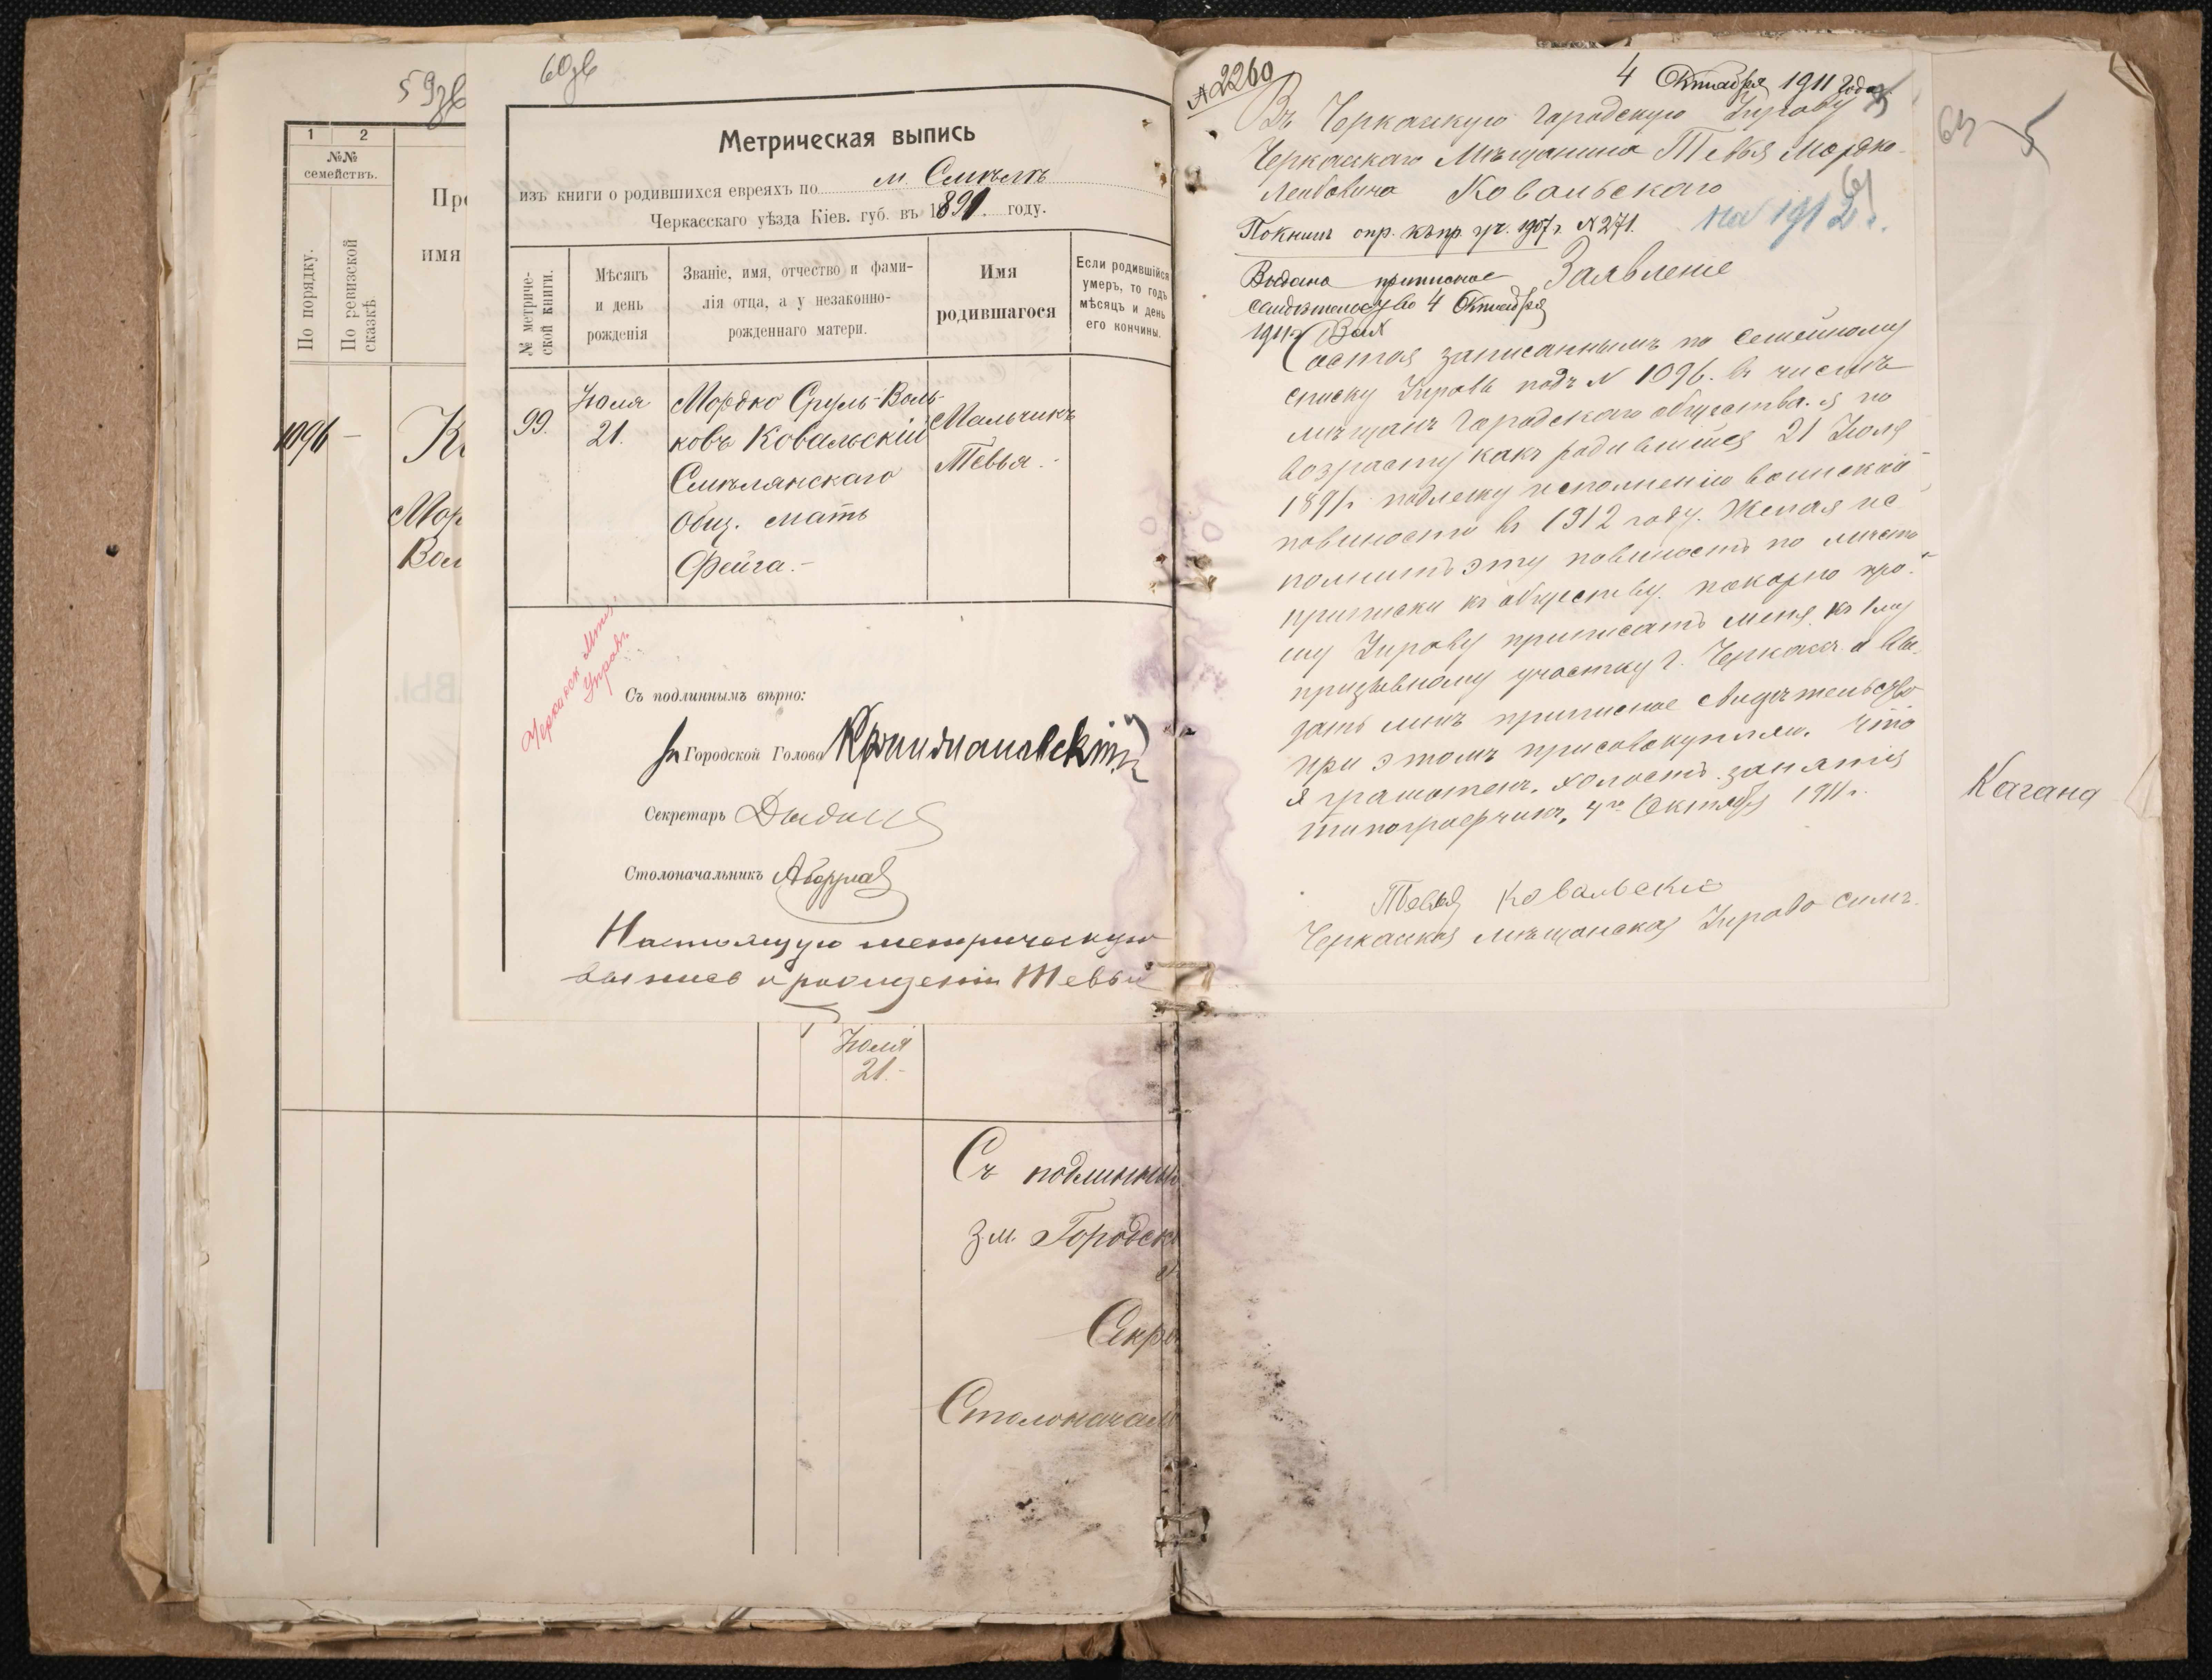 59
60
1 2
№№
семействъ.
По порядку.
По ревизской
сказкѣ
имя
1096 —
Мор
Вол
Метрическая выпись
изъ книги о родившихся евреяхъ по м. Смѣлѣ
Черкасскаго уѣзда Кіев. губ. въ 1891. году.
№ метриче-
ской книги.
Мѣсяцъ
и день
рожденія
Званіе, имя, отчество и фами-
лія отца, а у незаконно-
рожденнаго матери.
Имя
родившагося
Если родившійся
умеръ, то годъ
мѣсяцъ и день
его кончины.
99.
Юоля
21.
Мордко Сруль-Воль-
ковъ Ковальскій
Смѣлянскаго
Общ. мать
Фейга.-
Мальчикъ
Тевья.-
Съ подлиннымъ вѣрно:
Городской Голова
Секретарь
Столоначальникъ
Настоящую метрическую
выпись о рожденіи Тевьи
Юоля
21.-
Съ подлинны
Зм. Городск
Секре
Столоначаль
№ 2260
4 Октября 1911 года.
Въ Черкаскую Городскую Управу
Черкаскаго Мѣщанина Тевья Мордко-
Лейбовича Ковальскаго
на 1912 г.
По книгѣ опр. къ пр. уч. 1907 г. № 271.
Выдано приписное
свидѣтельство 4 Октября
1911 г.
Заявленіе
Состоя записаннымъ по семейному
списку Управы подъ № 1096. въ числѣ
мѣщанъ Городскаго общества. я по
возрасту какъ родившійся 21 Юоля
1891 г. подлежу исполненію воинской
повиности въ 1912 году. Желая ис
полнить эту повиность по мѣсту
приписки къ обществу. покорно про-
шу Управу приписать меня къ 1му
призывному участку г. Черкасъ и вы-
дать мнѣ приписное свидѣтельство
при этомъ присовокупляю. что
я грамотенъ. холостъ. занятія
типографчикъ, 4го Октября 1911 г.
Тевья Ковальскій
Черкаская мѣщанская Управа симъ
Кагана